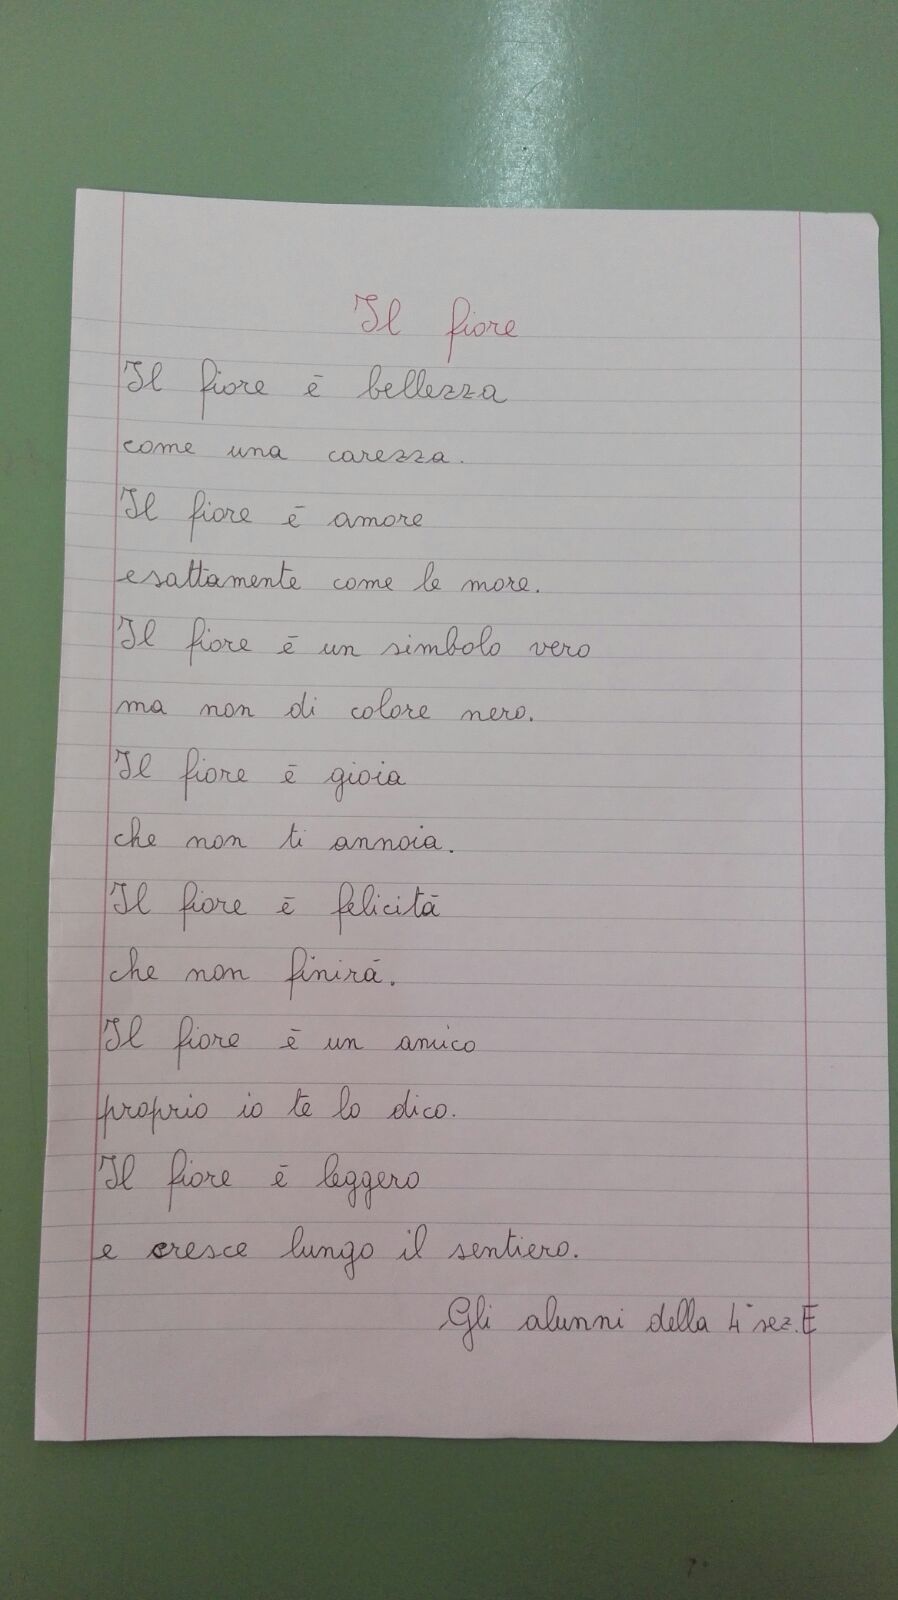 Il fiore
Il fiore è bellezza
come una carezza.
Il fiore è amore
esattamente come le more.
Il fiore è un simbolo vero
ma non di colore nero.
Il fiore è gioia
che non ti annoia.
Il fiore è felicità
che non finirà.
Il fiore è un amico
proprio io te lo dico.
Il fiore è leggero
e cresce lungo il sentiero.
Gli alunni della 4ª sez. E